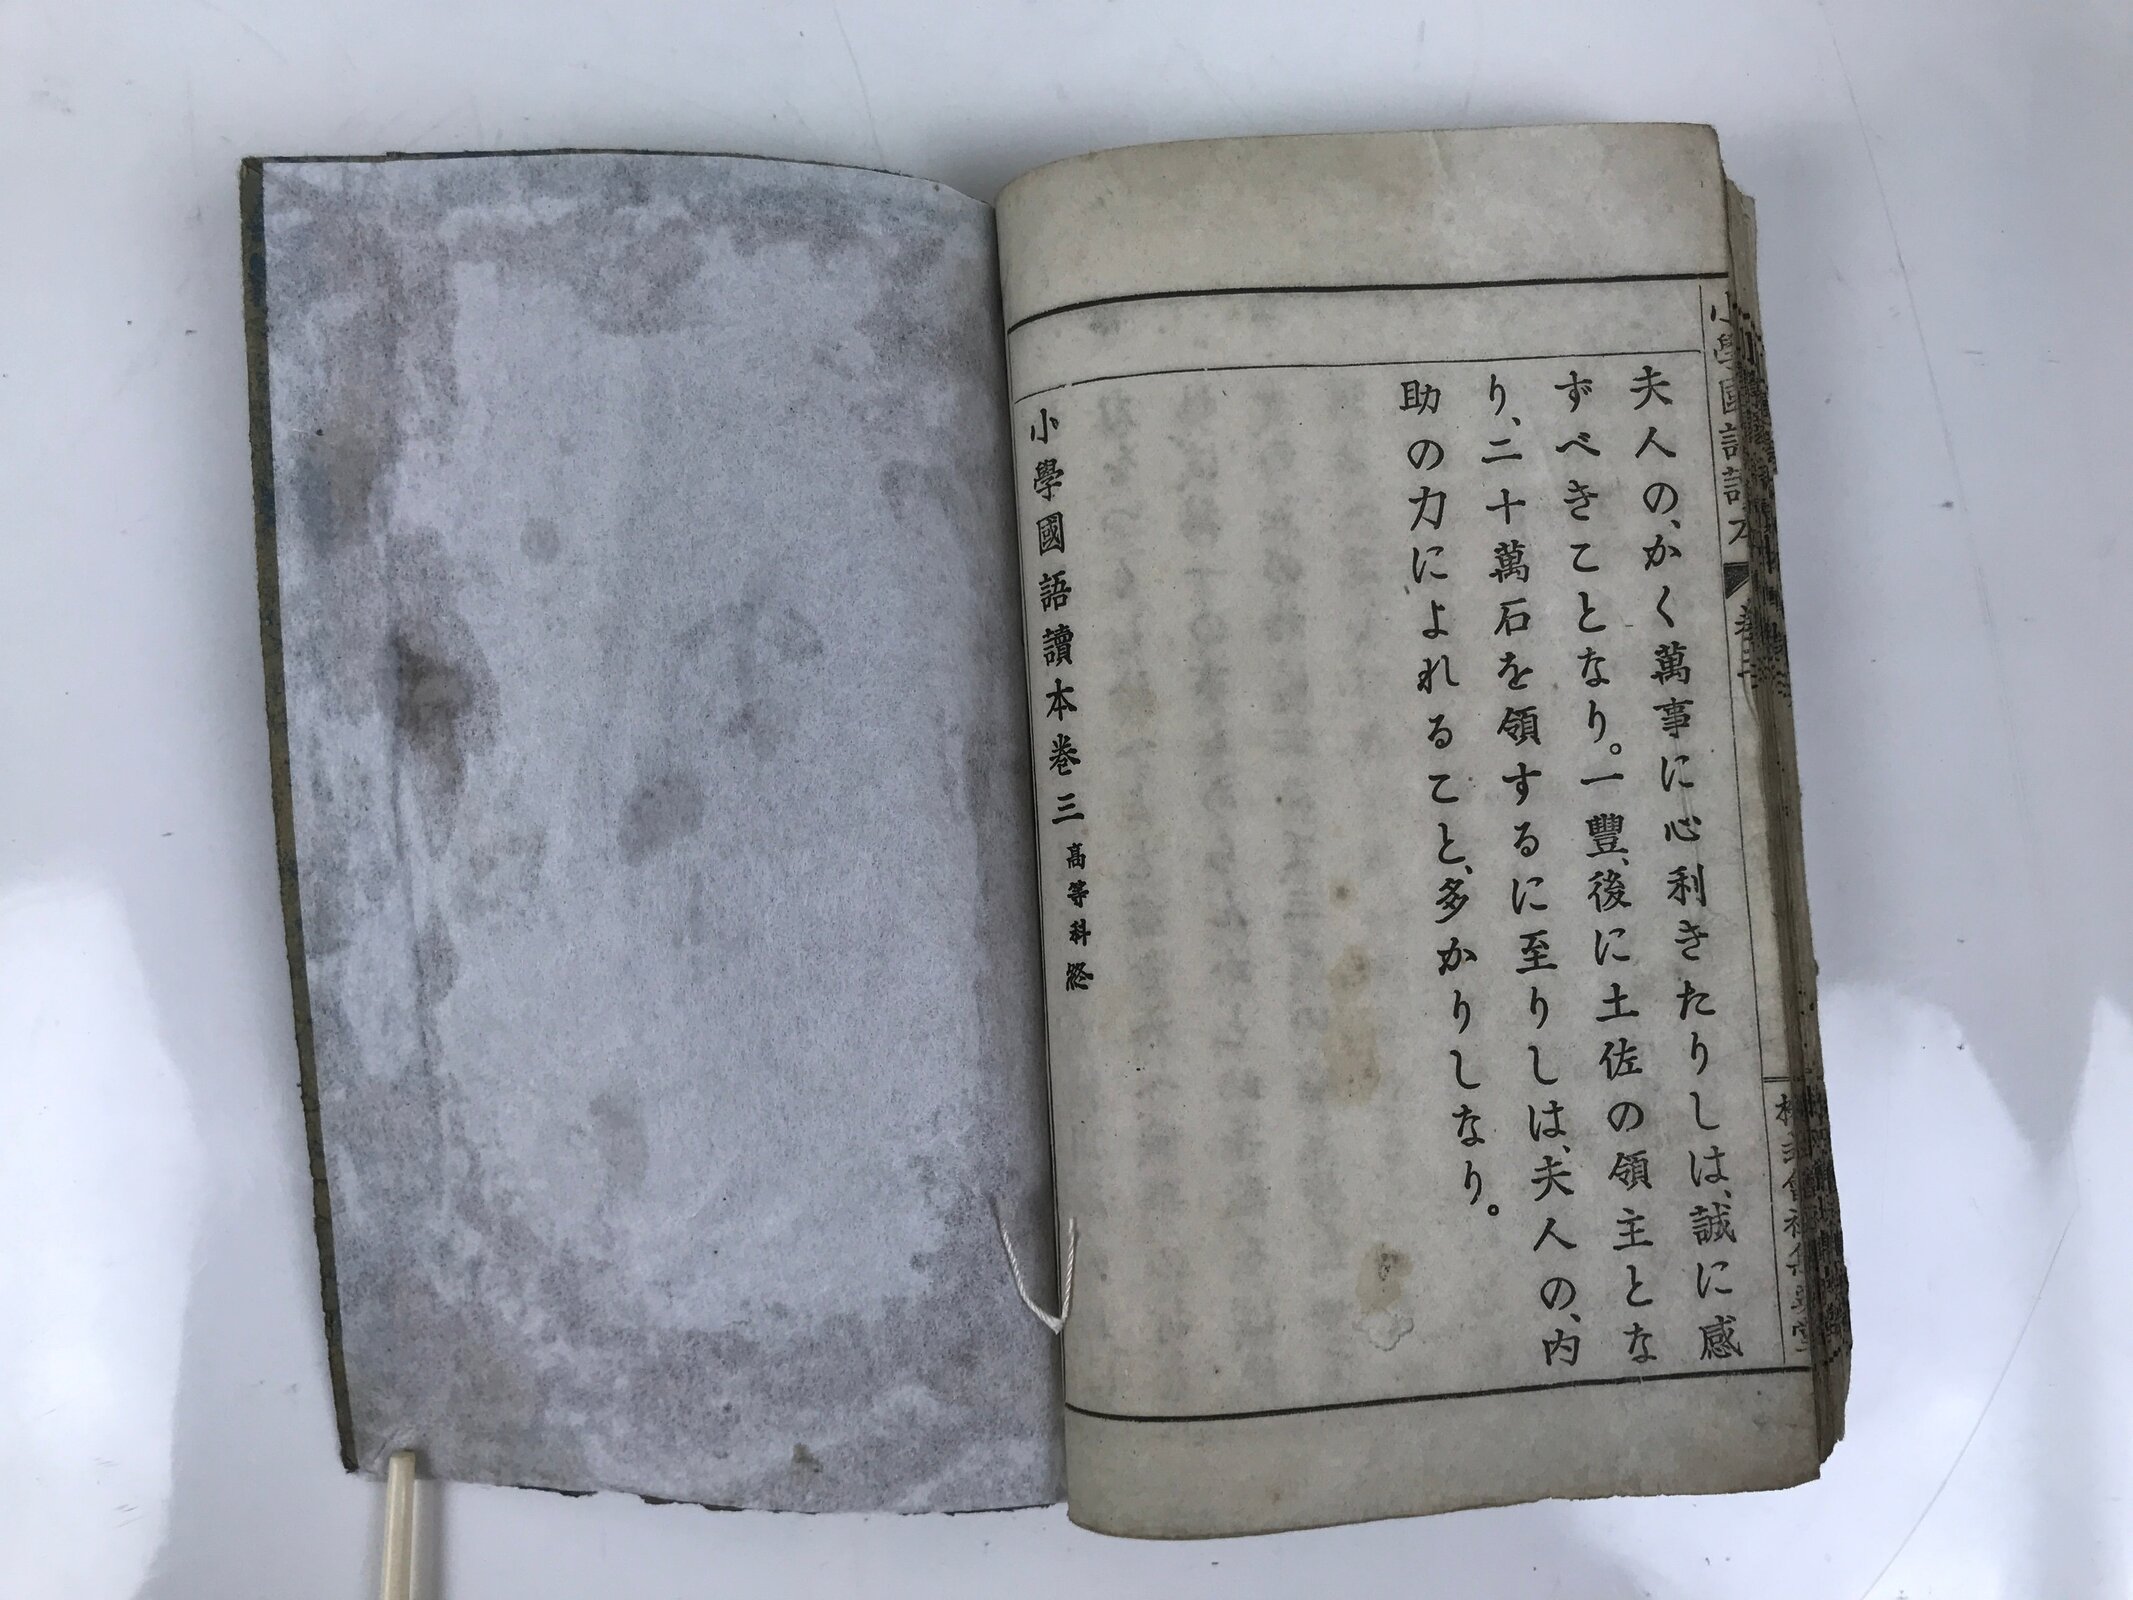 夫人の、かく萬事に心利きたりしは、誠に感
ずべきことなり。一豐、後に土佐の領主とな
り、二十萬石を領するに至りしは、夫人の、内
助の力によれること、多かりしなり。
小學國語讀本卷三高等科終
小學國語讀本
卷三